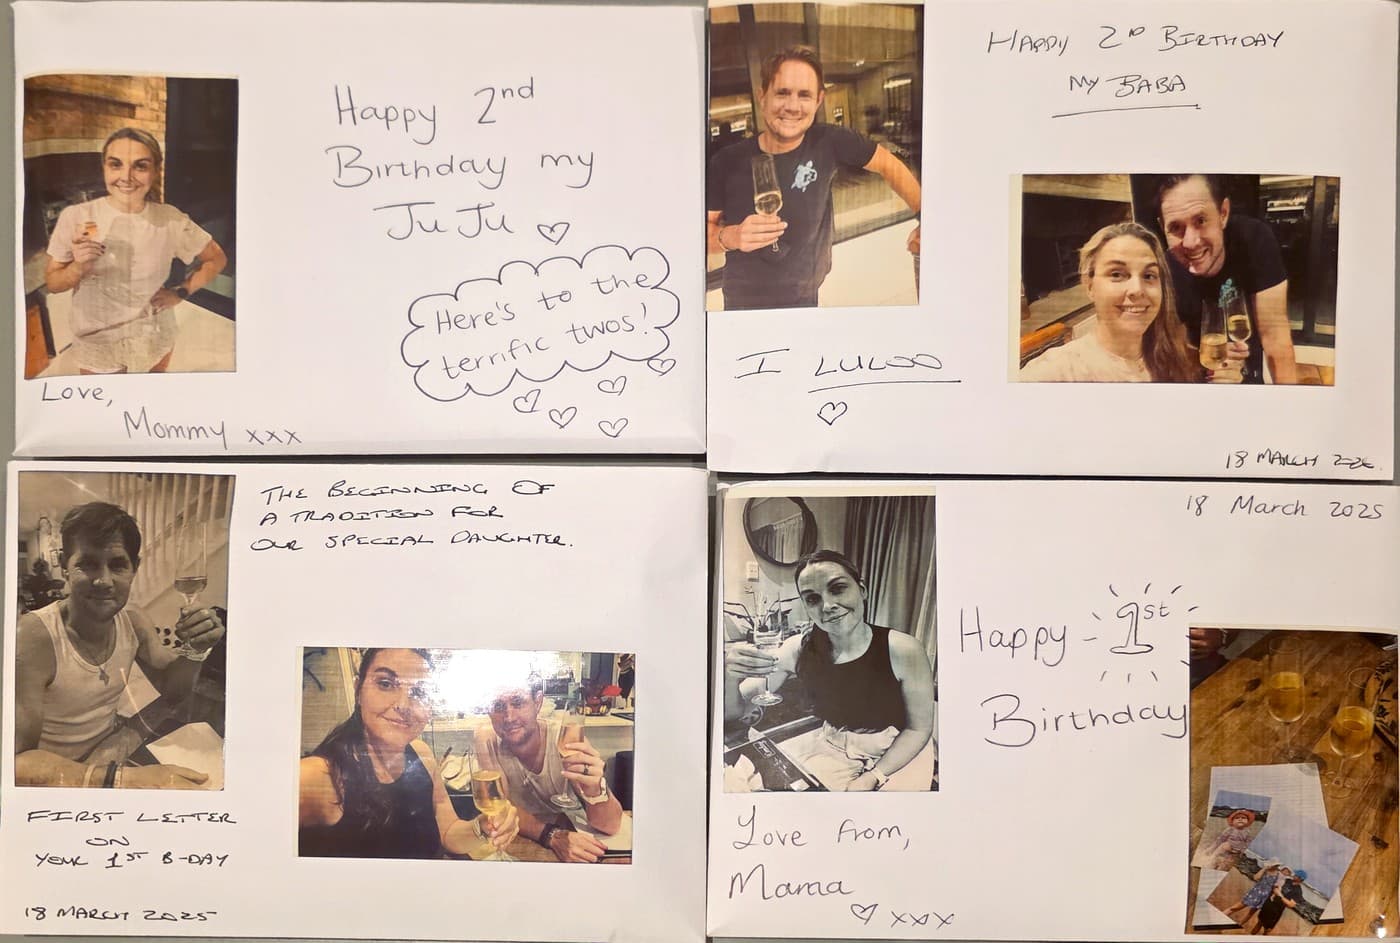 Happy 2nd
Birthday my
JuJu ♡
Here's to the
terrific twos!
Love,
Mommy xxx
HAPPY 2ND BIRTHDAY
MY BABA
I LULOO
♡
18 MARCH 2026.
THE BEGINNING OF
A TRADITION FOR
OUR SPECIAL DAUGHTER.
FIRST LETTER
ON
YOUR 1ST B-DAY
18 MARCH 2025
18 March 2025
Happy 1st
Birthday
Love from,
Mama
♡ xxx